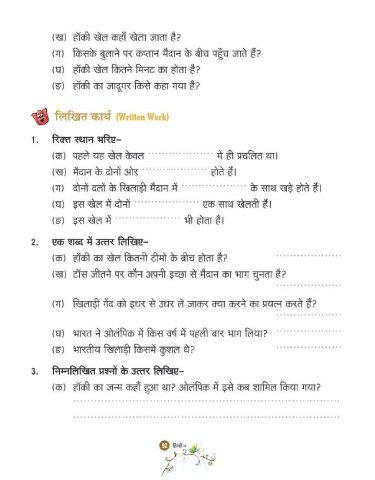 (ख) हॉकी खेल कहाँ खेला जाता है?
(ग) किसके बुलाने पर कप्तान मैदान के बीच पहुँच जाते हैं?
(घ) हॉकी खेल कितने मिनट का होता है?
(ङ) हॉकी का जादूगर किसे कहा गया है?
लिखित कार्य (Written Work)
1. रिक्त स्थान भरिए–
(क) पहले यह खेल केवल .................... में ही प्रचलित था।
(ख) मैदान के दोनों ओर .................... होते हैं।
(ग) दोनों दलों के खिलाड़ी मैदान में .................... के साथ खड़े होते हैं।
(घ) इस खेल में दोनों .................... एक साथ खेलती हैं।
(ङ) इस खेल में .................... भी होता है।
2. एक शब्द में उत्तर लिखिए–
(क) हॉकी का खेल कितनी टीमों के बीच होता है? ....................
(ख) टॉस जीतने पर कौन अपनी इच्छा से मैदान का भाग चुनता है?
....................
(ग) खिलाड़ी गेंद को इधर से उधर ले जाकर क्या करने का प्रयत्न करते हैं?
....................
(घ) भारत ने ओलंपिक में किस वर्ष में पहली बार भाग लिया? ....................
(ङ) भारतीय खिलाड़ी किसमें कुशल थे? ....................
3. निम्नलिखित प्रश्नों के उत्तर लिखिए–
(क) हॉकी का जन्म कहाँ हुआ था? ओलंपिक में इसे कब शामिल किया गया?